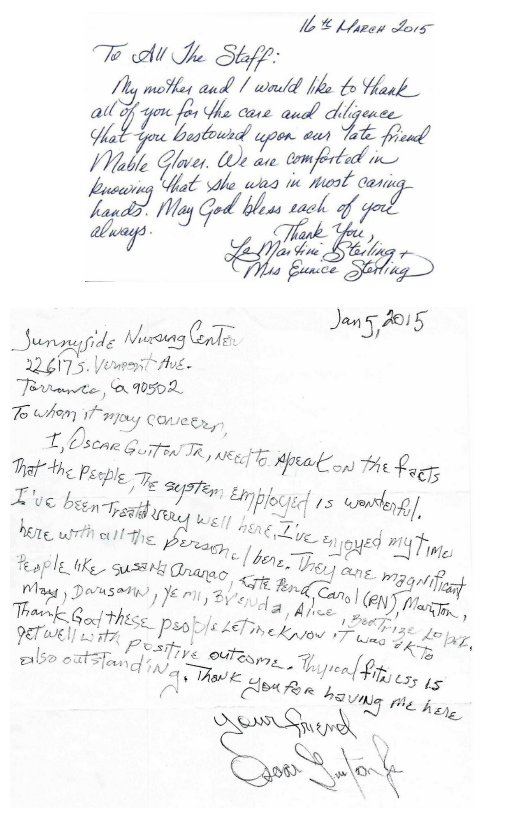 16th March 2015
To All The Staff:
My mother and I would like to thank
all of you for the care and diligence
that you bestowed upon our late friend
Mable Glover. We are comforted in
knowing that she was in most caring
hands. May God bless each of you
always.
Thank You,
La Martine Sterling +
Mrs Eunice Sterling
Jan 5, 2015
Sunnyside Nursing Center
22617 S. Vermont Ave.
Torrance, Ca 90502
To whom it may concern,
I, Oscar Guiton Jr, need to speak on the facts
That the People, The system Employed is wonderful.
I've been Treated very well here, I've enjoyed my time
here with all the personel here. They are magnificant
People like Susana Aranao, Kate Pena, Carol (RN), Marton,
May, Dawsann, Yemi, Brenda, Alice, Beatrize Lopez.
Thank God these people Let me know it was ok to
get well with positive outcome. Physical fitness is
also outstanding. Thank you for having me here
your friend
Oscar Guiton Jr